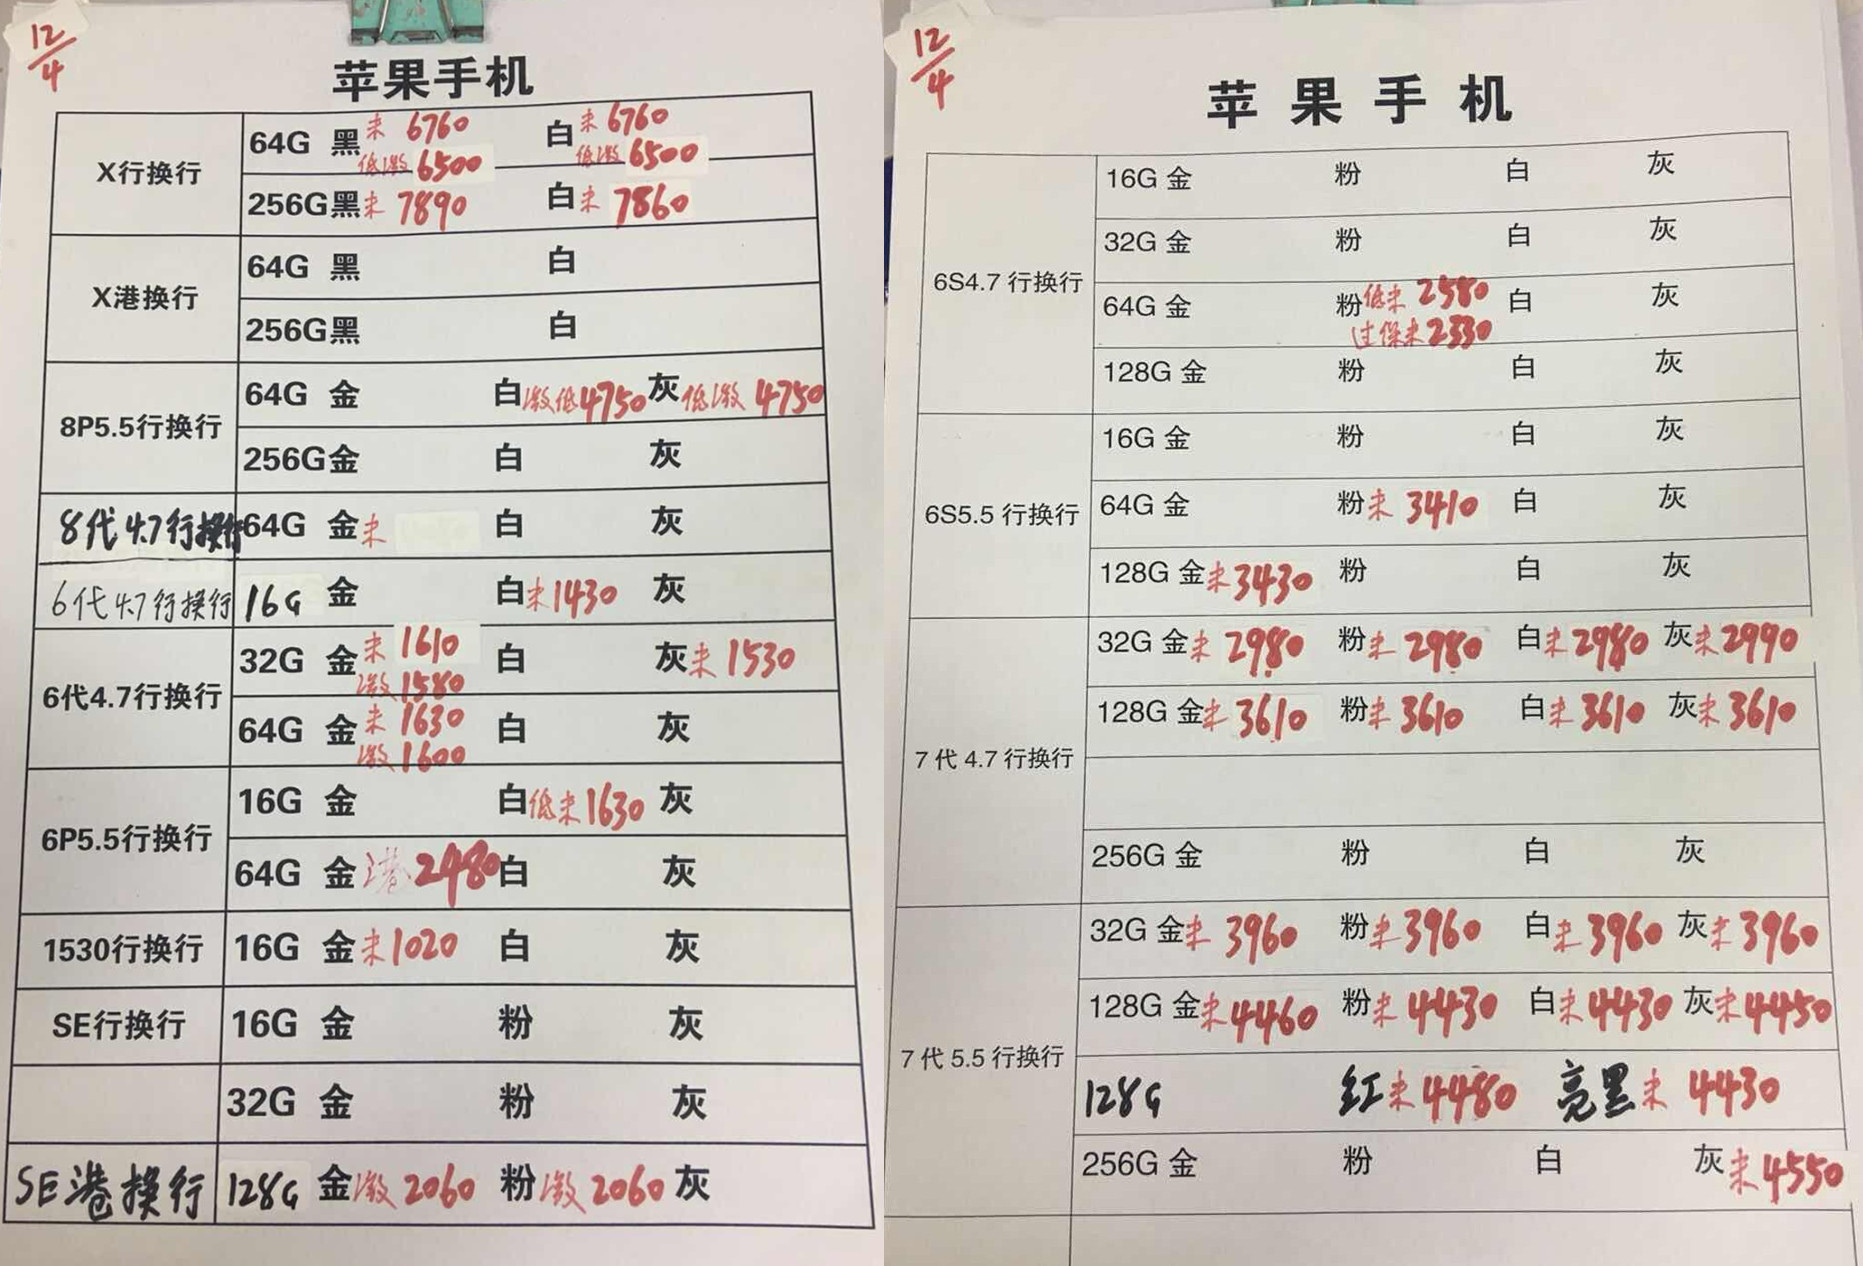 12/4
苹果手机
X行换行 64G 黑 未 6760 白 未 6760
低激 6500 低激 6500
256G 黑 未 7890 白 未 7860
X港换行 64G 黑 白
256G 黑 白
8P5.5行换行 64G 金 白 激低 4750 灰 低激 4750
256G 金 白 灰
8代4.7行换行 64G 金 未 白 灰
6代4.7行换行 16G 金 白 未 1430 灰
6代4.7行换行 32G 金 未 1610 白 灰 未 1530
激 1580
64G 金 未 1630 白 灰
激 1600
6P5.5行换行 16G 金 白 低未 1630 灰
64G 金 港 2480 白 灰
1530行换行 16G 金 未 1020 白 灰
SE行换行 16G 金 粉 灰
32G 金 粉 灰
SE港换行 128G 金 激 2060 粉 激 2060 灰
12/4
苹果手机
6S4.7行换行 16G 金 粉 白 灰
32G 金 粉 白 灰
64G 金 粉 低未 2580 白 灰
过保未 2330
128G 金 粉 白 灰
6S5.5行换行 16G 金 粉 白 灰
64G 金 粉 未 3410 白 灰
128G 金 未 3430 粉 白 灰
7代4.7行换行 32G 金 未 2980 粉 未 2980 白 未 2980 灰 未 2990
128G 金 未 3610 粉 未 3610 白 未 3610 灰 未 3610
256G 金 粉 白 灰
7代5.5行换行 32G 金 未 3960 粉 未 3960 白 未 3960 灰 未 3960
128G 金 未 4460 粉 未 4430 白 未 4430 灰 未 4450
128G 红 未 4480 亮黑 未 4430
256G 金 粉 白 灰 未 4550